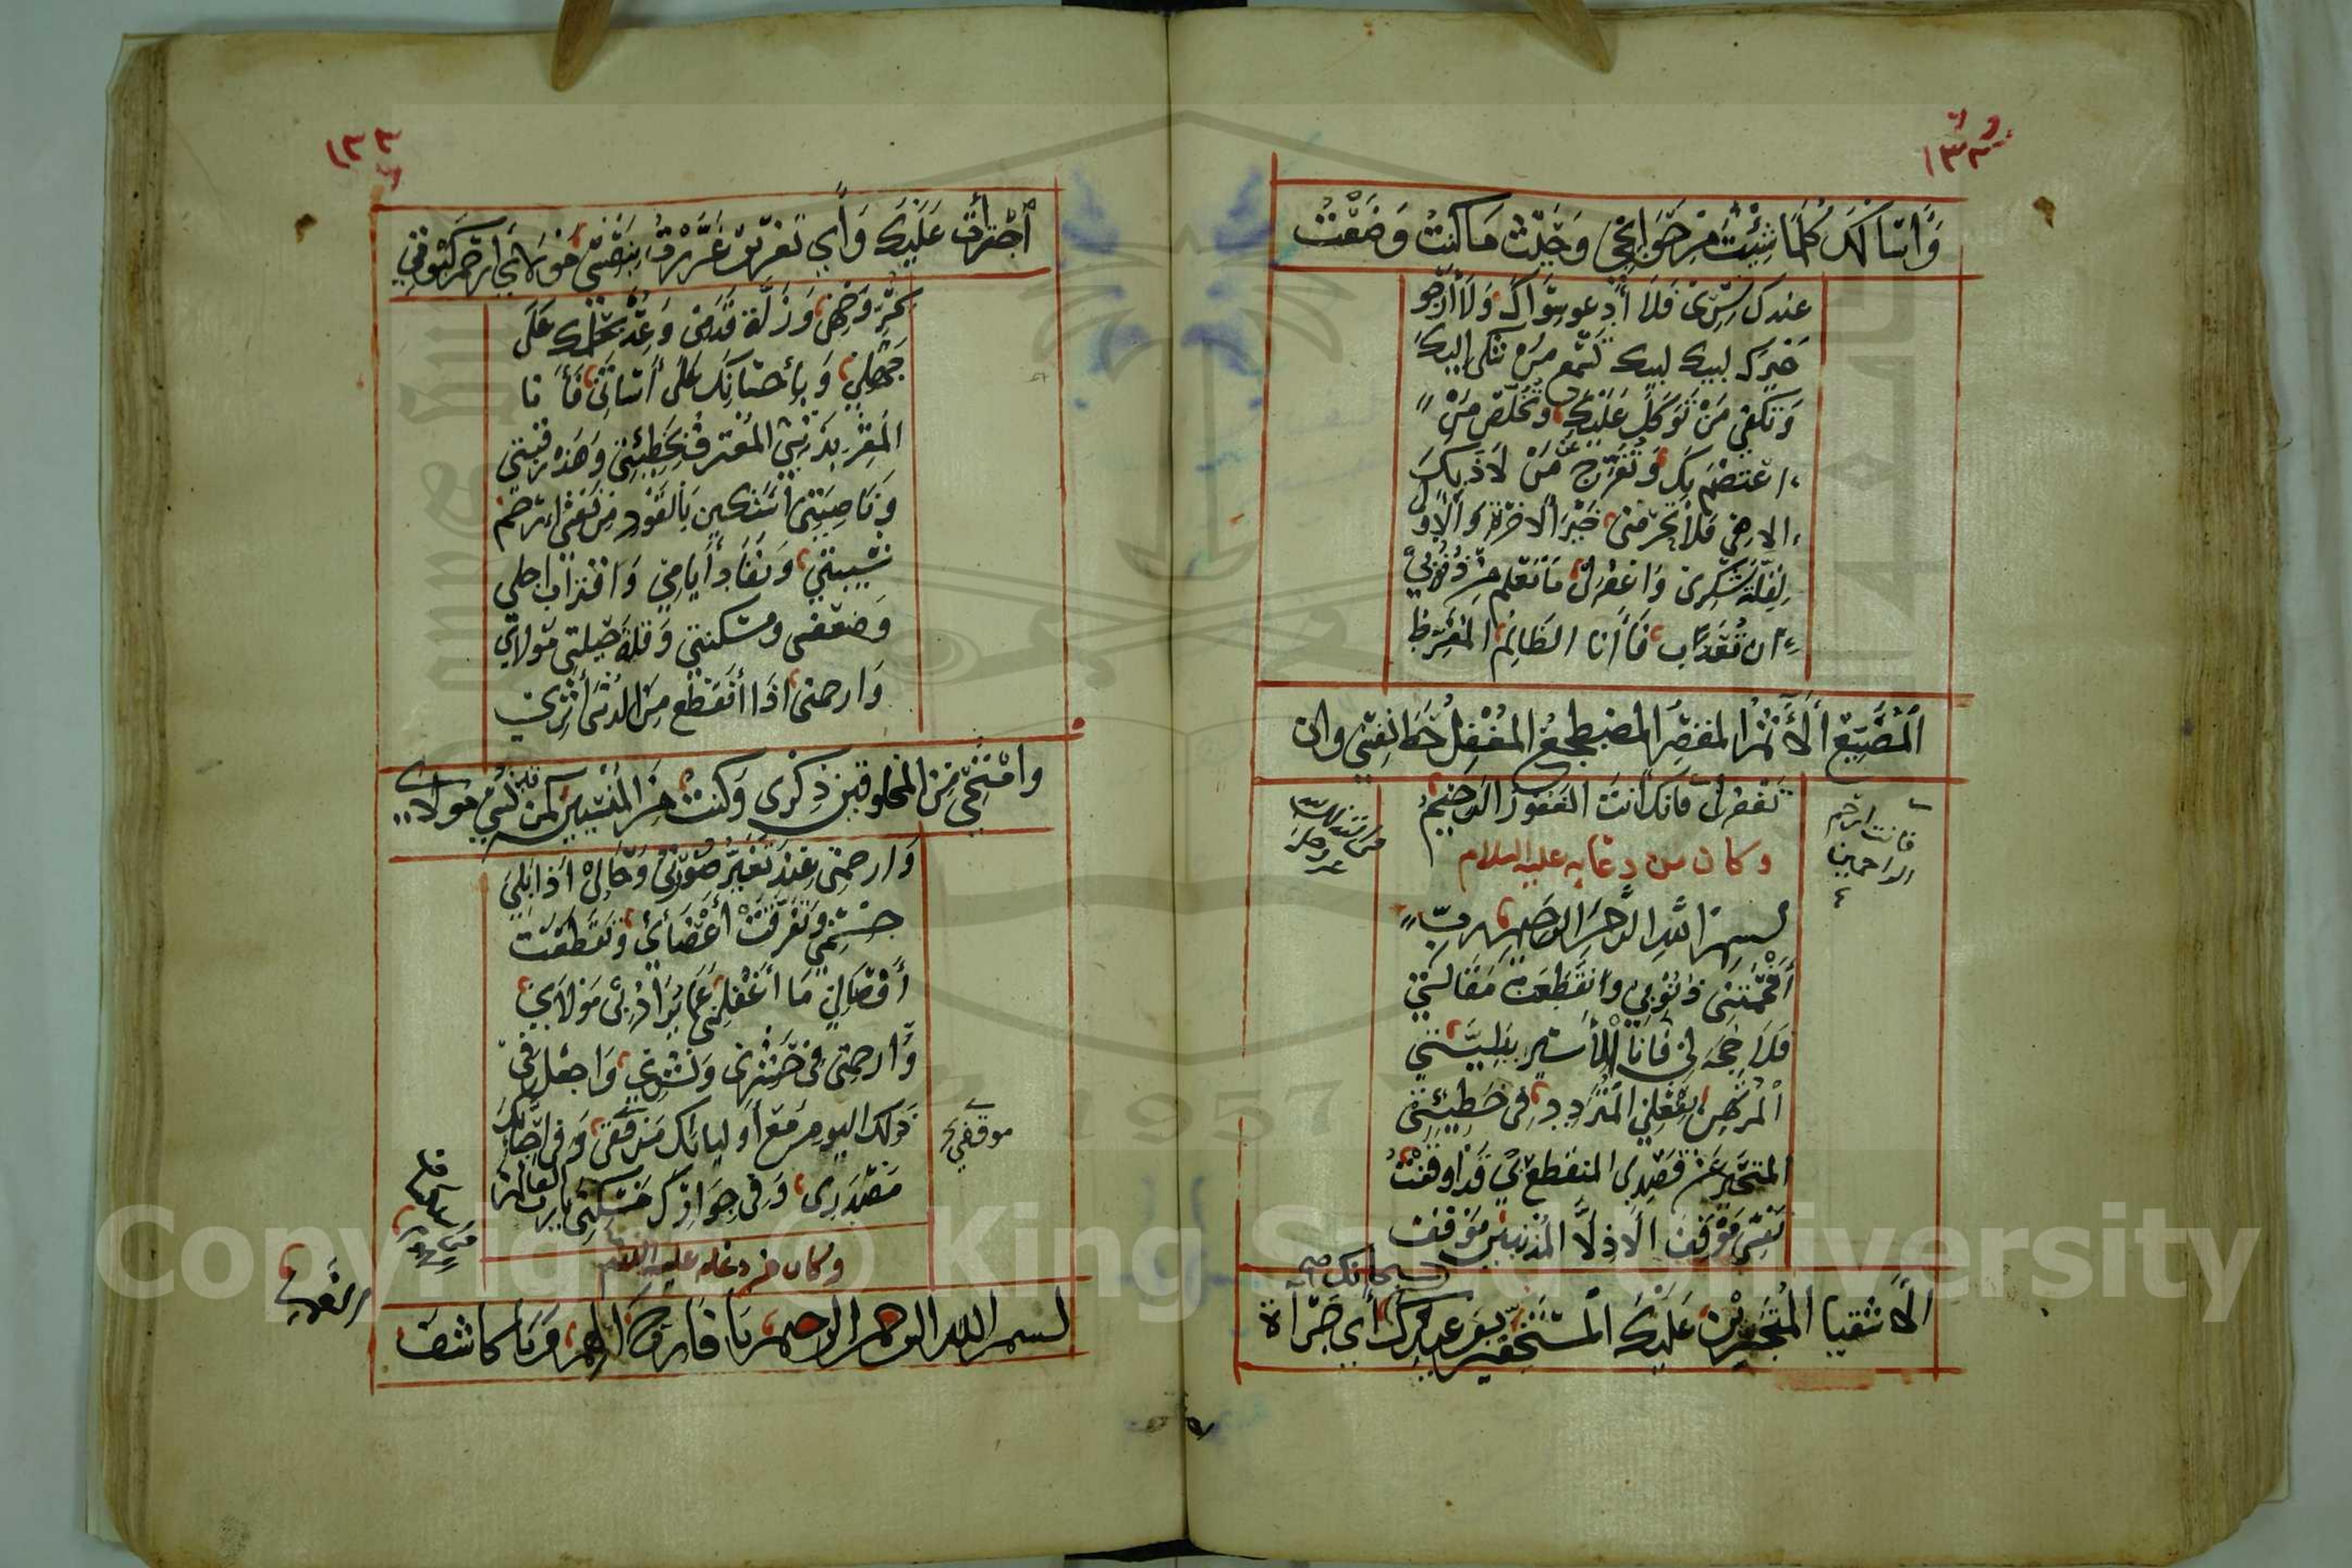 ١٣٢
وَاسَالكَ كُلَّمَا شِئْتُ مِنْ حَوَائِجِي وَحَيْثُ مَا كنتُ وَضَعْتُ
عندك سِرّي فَلَا أَدْعو سِوَاكَ وَلَا أرْجو
غَيْرَكَ لبيك لبيك تَسْمَع مَنْ شكى إليكَ
وَتَكفي مَنْ تَوَكلَ عَلَيْكَ وتُخَلّصَ مَنْ
اعْتصَمَ بِكَ وَتُفَرّج عَنْ مَنْ لَاذَ بِكَ
الاهي فَلَا تَحْرمْني خَيْرَ الاخرة وَالاولى
لِقِلّة شكري وَاغْفرْ لي مَا تَعْلم مِنْ ذُنُوبيْ
ان تُعَذّب فَأَنا الظَالِمُ المفَرِّط
المُضَيِّع الأَثمُ المقصِّر المضطجعُ المُغْفِلُ حَظ نَفسِي وان
تَغْفرْ لي فانك انتَ الغفورُ الرَّحيمُ
فانت ارحم
الراحمين
وكان من دعايه عليه السلام
بسم الله الرحمن الرحيم ربّ
أَفْحَمَتْنِي ذُنُوبي وانقَطَعَتْ مَقَالَتي
فَلَا حُجَّةَ لي فَانَا الأَسير ببَليَّتي
المُرْتَهن بِفعْلي المُتَرَدِد في خَطِيْئَتي
المتَحَيِّر عَنْ قَصْدِي المنقطعُ بيْ قَدْ اوقفْتُ
نَفْسي مَوْقفَ الاذلَّا المُذنبيْنَ مَوْقفَ
سبحانك صح
الأَشقيا المُتَجَرِّيْن عَلَيْكَ المُسْتَخِفّيْن بوَعدِكَ أَي جَرْأَة
١٣٣
اجْتَرأتُ عَلَيْكَ وَأَي تَغريْر غَرَّرْتُ بِنَفْسِي مَوْلَايَ ارْحَمْ كَبْوَتي
لِحُرِّ وَجْهِي وَزَلَّةَ قَدَمي وَعُدْ بِحِلْمِكَ عَلَى
جَهْلي وَبِأحسَانِكَ عَلَى أسَائتي فَأنا
المقِرّ بِذَنْبي المعْترفُ بِخَطيئتي وَهَذه رقبتي
وَنَاصِيَتي اسْتَكين بِالقَوَدِ مِنْ نَفْسي ارْحَمْ
شَيْبَتي وَنَفَادِ أَيامِي وَاقْترَاب اجلي
وَضعْفي ومسْكنتي وَقلّةَ حيْلتي مَوْلاي
وَارحمني اذَا انْقَطَع مِنَ الدُّنْيَا أَثَري
وامْتَحَى مِنَ المخلوقين ذِكْري وَكنتُ مِنَ المَنْسِيينَ كَمنْ قَد نُسي مولاي
وَارحمني عِنْدَ تَغَيُّر صُوْرَتي وَحَالي اذا بَلِيَ
جسْمي وتَفَرَّقَتْ أعْضَائي وَتَقَطَّعَتْ
أَوْصَالي مَا أغْفلَني عَمّا يُرَادُ بيْ مَوْلَايَ
وَارحمني في حَشْري وَنَشْري وَاجْعلْ في
ذَلك اليوم مَعَ أَوليائك مَوْقفي وَفي احبائكَ
موقفي
مَصْدَرِي وَفي جِوَارِكَ مَسْكَني يا رب العالمين
وكان من دعايه عليه السلام
بسم الله الرحمن الرحيم يَا فَارِجَ الهَم وَيَا كاشفَ